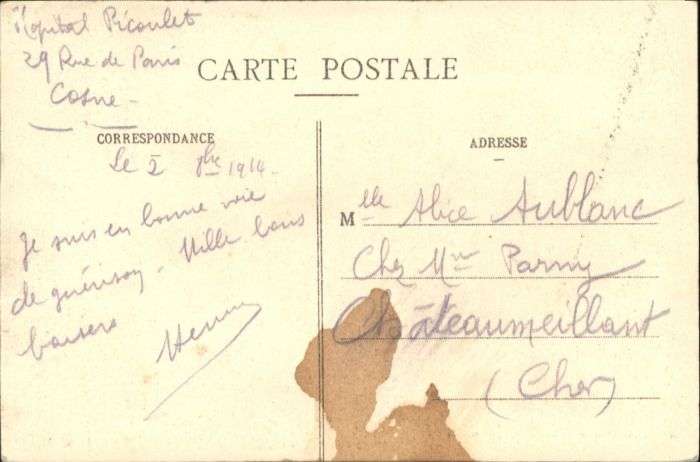 Hôpital Picoulet
29 Rue de Paris
Cosne
CARTE POSTALE
CORRESPONDANCE
Le 2 8bre 1914
Je suis en bonne voie
de guérison. Mille bons
baisers
Henri
ADRESSE
Mlle Alice Aublanc
Chez Mme Parny
Châteaumeillant
(Cher)